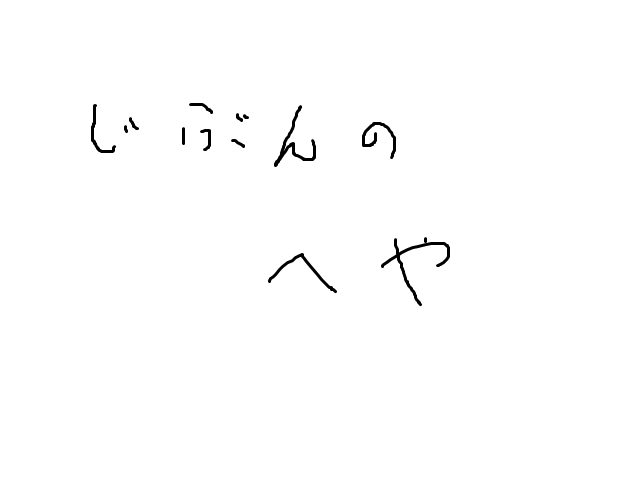 じぶんの
へや